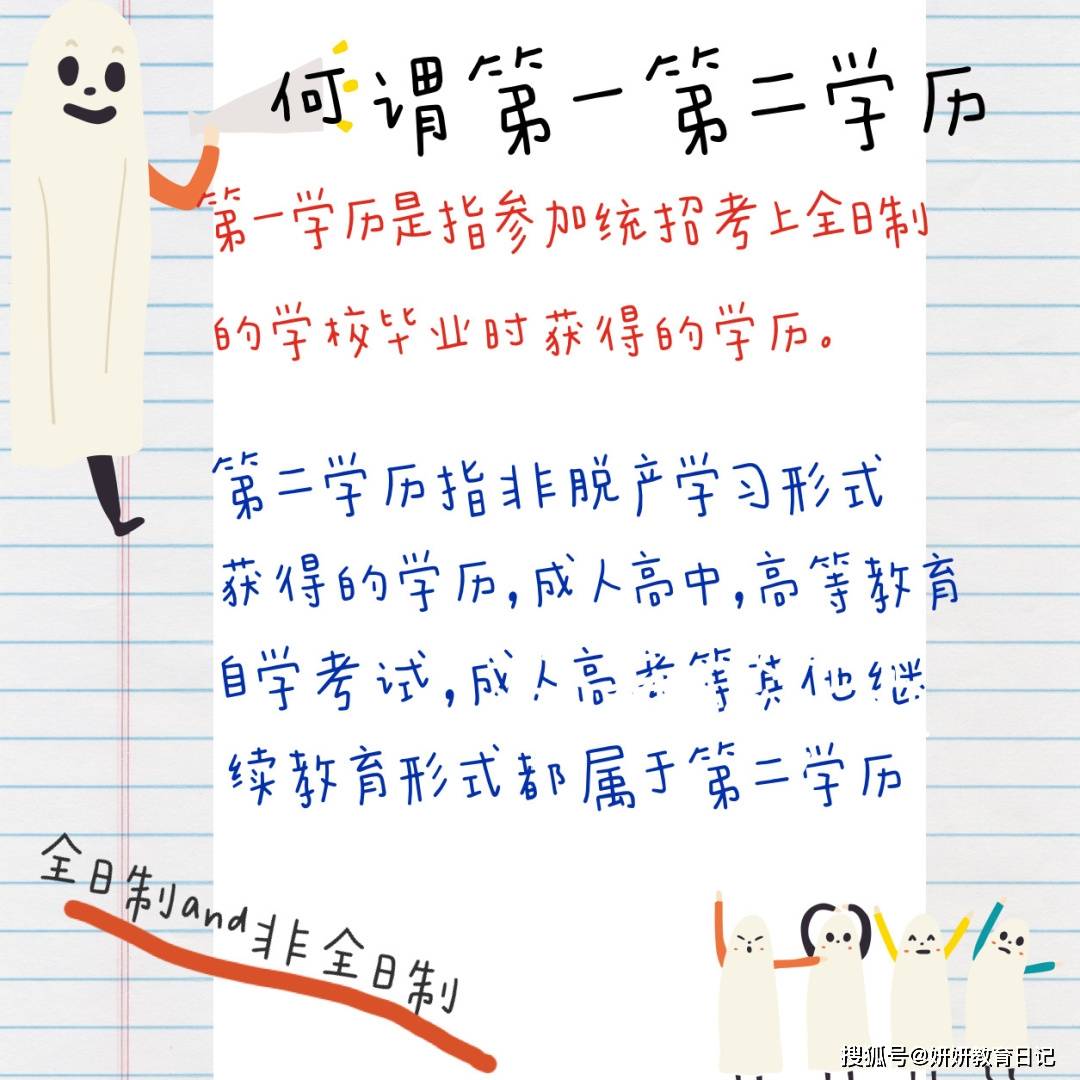 何谓第一第二学历
第一学历是指参加统招考上全日制
的学校毕业时获得的学历。
第二学历指非脱产学习形式
获得的学历,成人高中,高等教育
自学考试,成人高考等其他继
续教育形式都属于第二学历
全日制and非全日制
搜狐号@妍妍教育日记